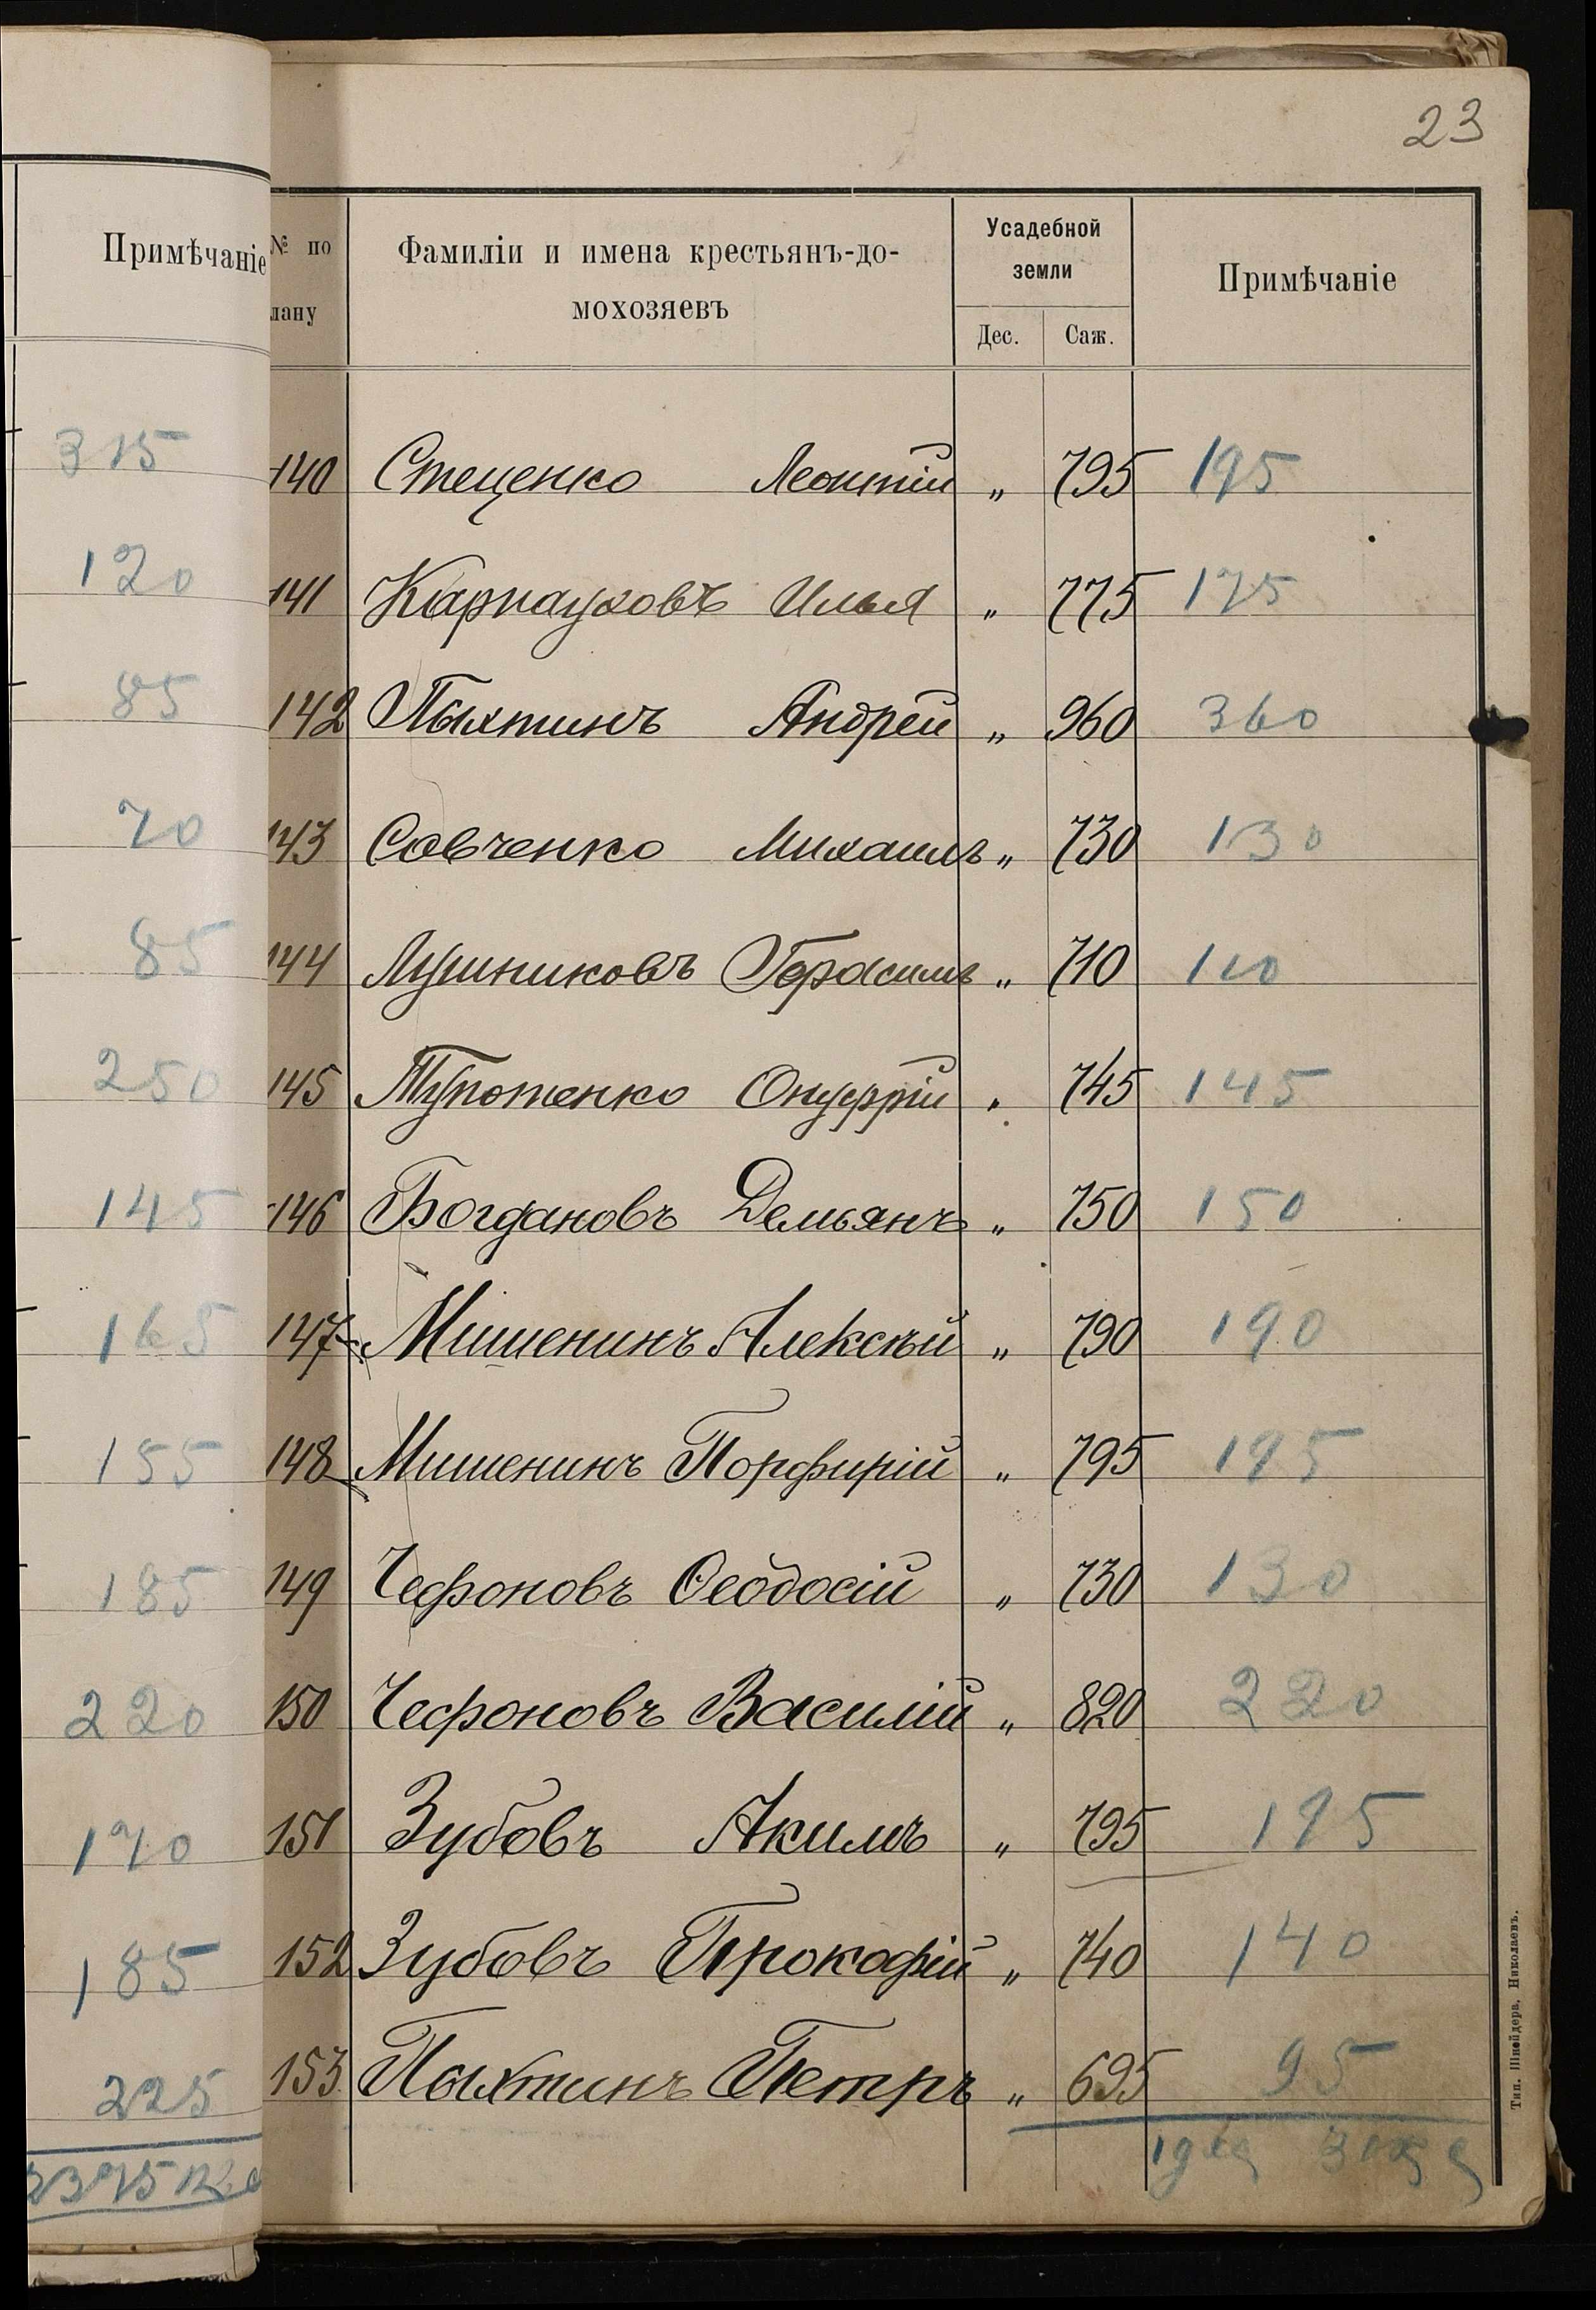 23
Примѣчаніе
315
120
85
70
85
250
145
165
155
185
220
170
185
225
2375
№ по
лану
Фамиліи и имена крестьянъ-до-
мохозяевъ
Усадебной
земли
Дес. Саж.
Примѣчаніе
140 Стеценко Леонтій „ 795 195
141 Карнауховъ Илья „ 775 175
142 Пыхтинъ Андрей „ 960 360
143 Савченко Михаилъ „ 730 130
144 Лушниковъ Герасимъ „ 710 110
145 Тупотенко Онуфрій „ 745 145
146 Богдановъ Демьянъ „ 750 150
147 Мишенинъ Алексѣй „ 790 190
148 Мишенинъ Порфирій „ 795 195
149 Чефоновъ Ѳеодосій „ 730 130
150 Чефоновъ Василій „ 820 220
151 Зубовъ Акимъ „ 795 195
152 Зубовъ Прокофій „ 740 140
153 Пыхтинъ Петръ „ 695 95
Тип. Шнейдера, Николаевъ.